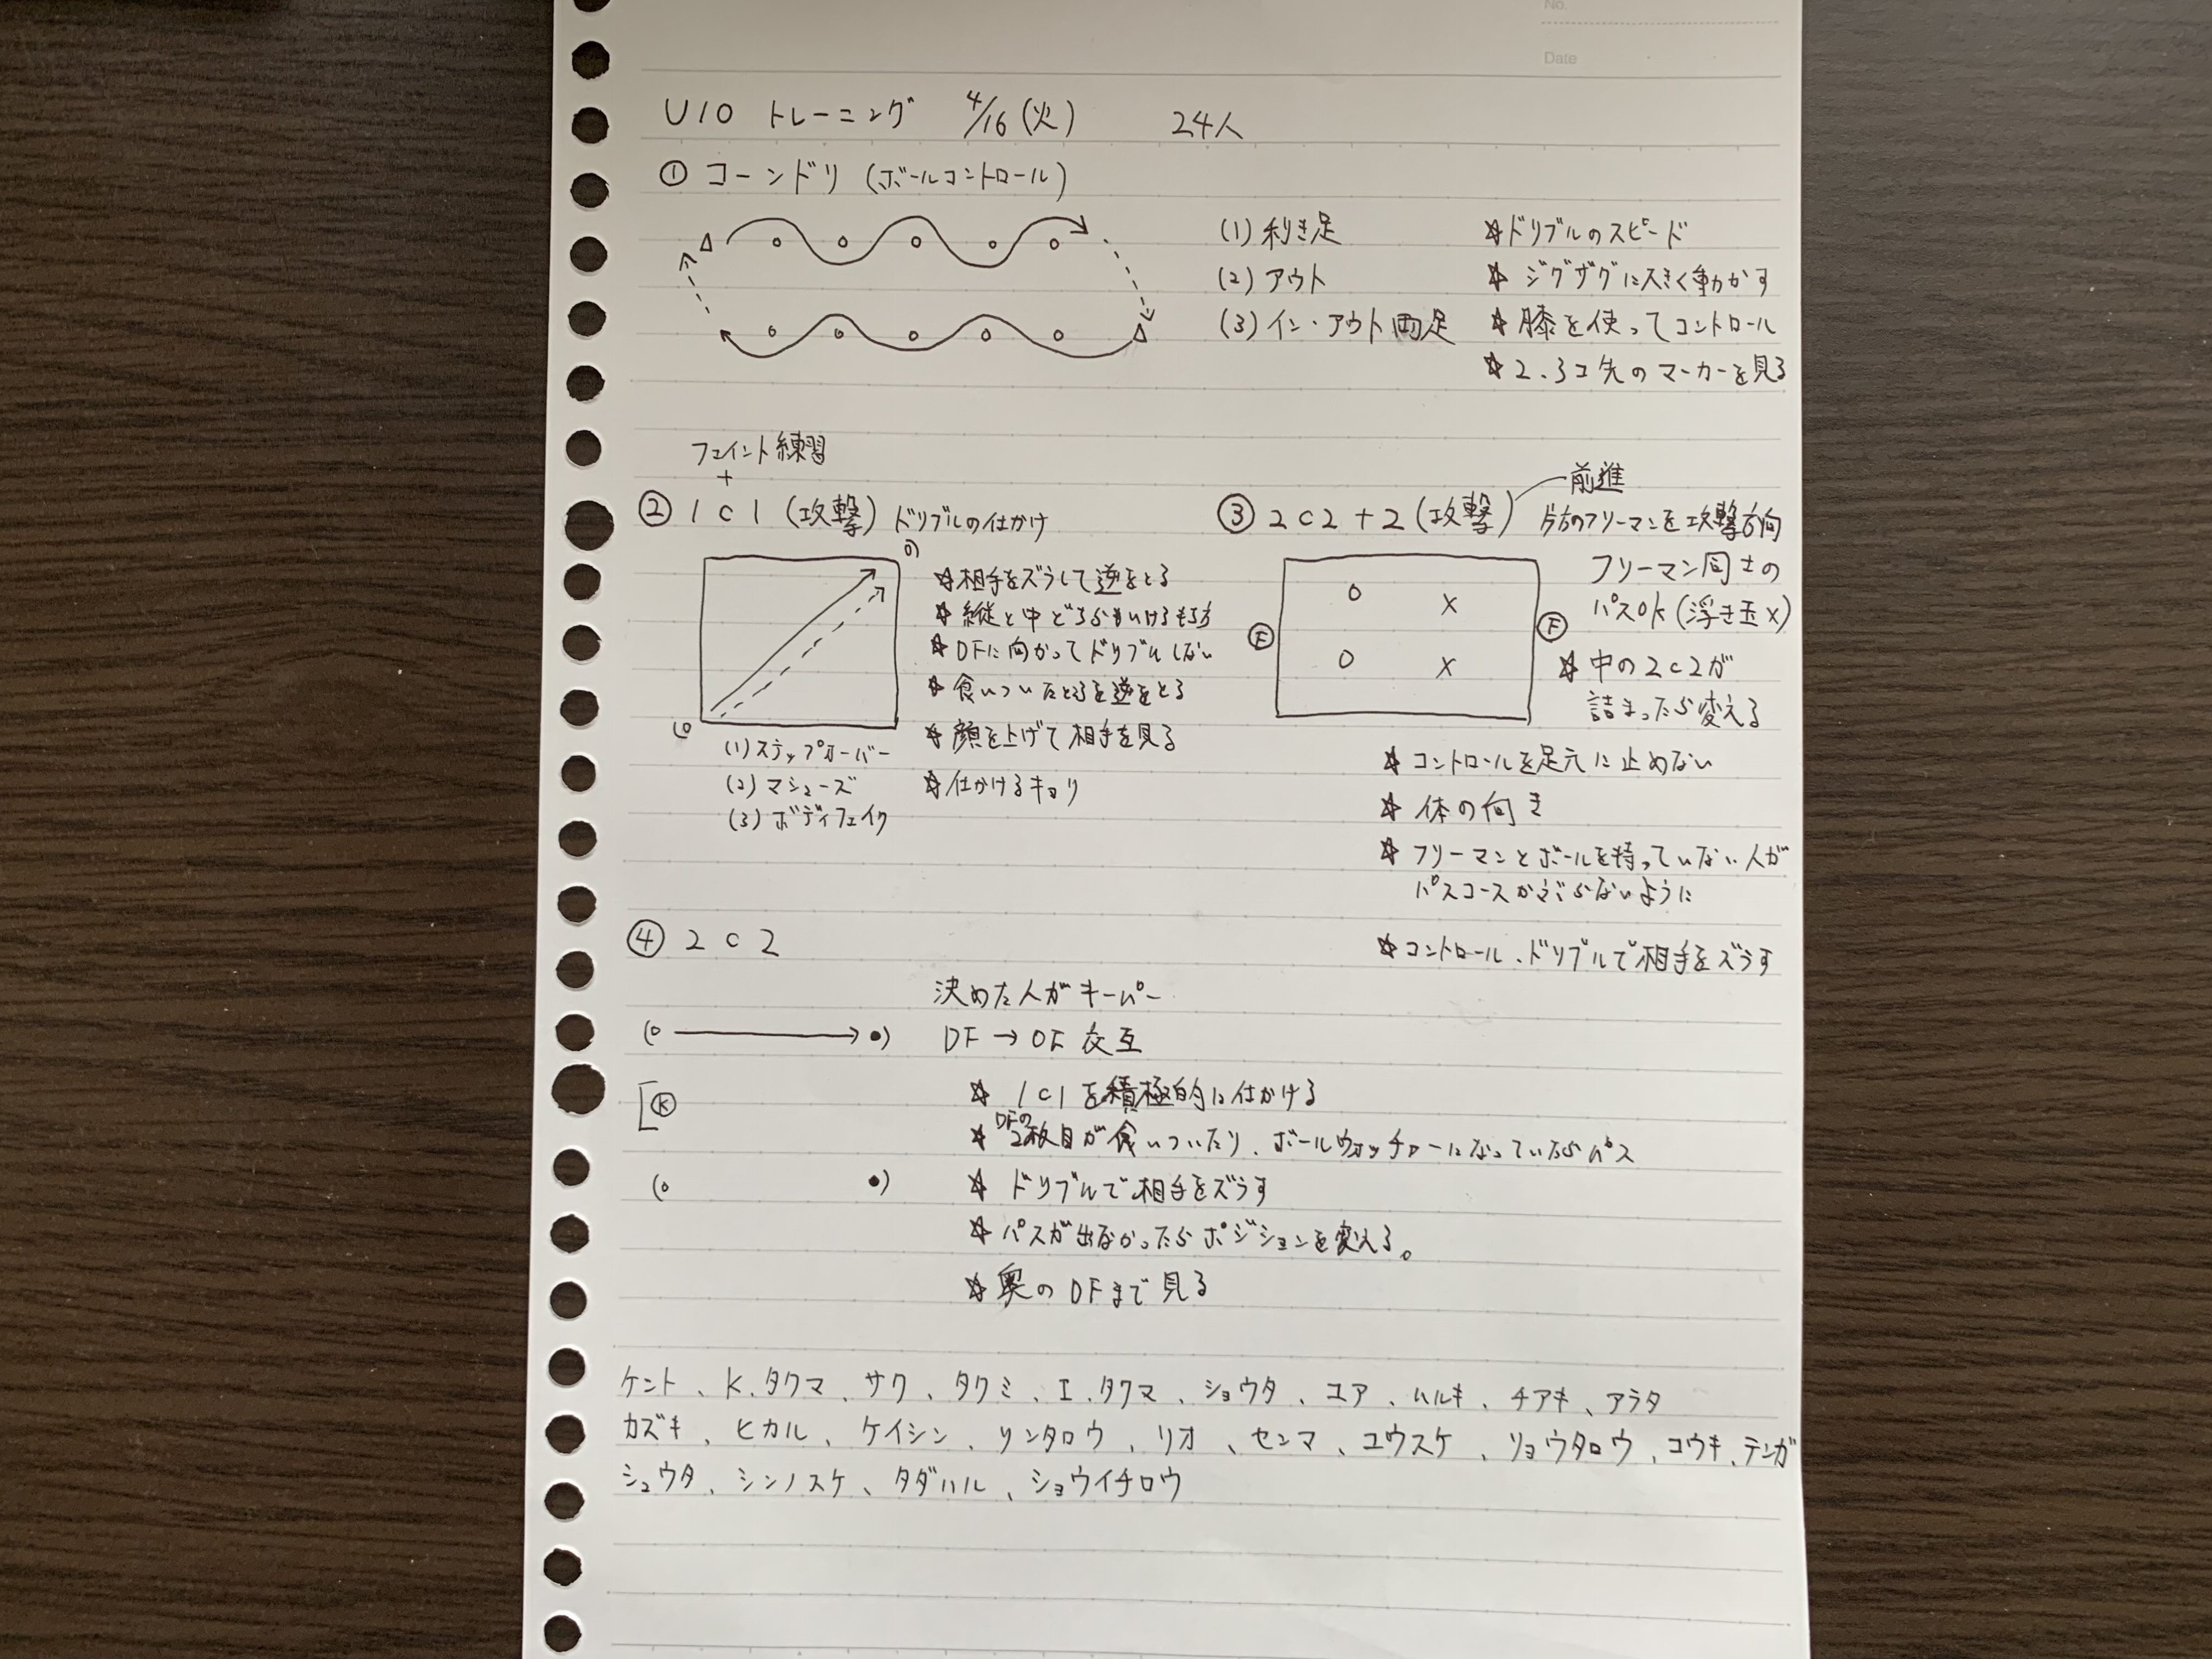 No.
Date
U10 トレーニング 4/16(火) 24人
① コーンドリ (ボールコントロール)
(1) 利き足
(2) アウト
(3) イン・アウト両足
☆ドリブルのスピード
☆ ジグザグに大きく動かす
☆ 膝を使ってコントロール
☆ 2、3コ先のマーカーを見る
フェイント練習
+
② 1c1 (攻撃) ドリブルの仕かけ
☆相手をズラして逆をとる
☆ 縦と中どちらもいけるもち方
☆ DFに向かってドリブルしない
☆ 食いついたところを逆をとる
☆ 顔を上げて相手を見る
☆仕かけるキョリ
(1) ステップオーバー
(2) マシューズ
(3) ボディフェイク
③ 2c2+2 (攻撃) 前進
片方のフリーマンを攻撃方向
フリーマン同士の
パスOK (浮き玉×)
O X
F F
O X
☆ 中の2c2が
詰まったら変える
☆ コントロールを足元に止めない
☆ 体の向き
☆ フリーマンとボールを持っていない人が
パスコースかぶらないように
☆ コントロール、ドリブルで相手をズラす
④ 2c2
決めた人がキーパー
DF→OF 交互
K
☆ 1c1を積極的に仕かける
☆ DFの2枚目が食いついたり、ボールウォッチャーになっていたらパス
☆ ドリブルで相手をズラす
☆ パスが出なかったらポジションを変える。
☆ 奥のDFまで見る
ケント、K.タクマ、サク、タクミ、I.タクマ、ショウタ、ユア、ハルキ、チアキ、アラタ
カズキ、ヒカル、ケイシン、リンタロウ、リオ、センマ、ユウスケ、リョウタロウ、コウキ、テンガ
シュウタ、シンノスケ、タダハル、ショウイチロウ